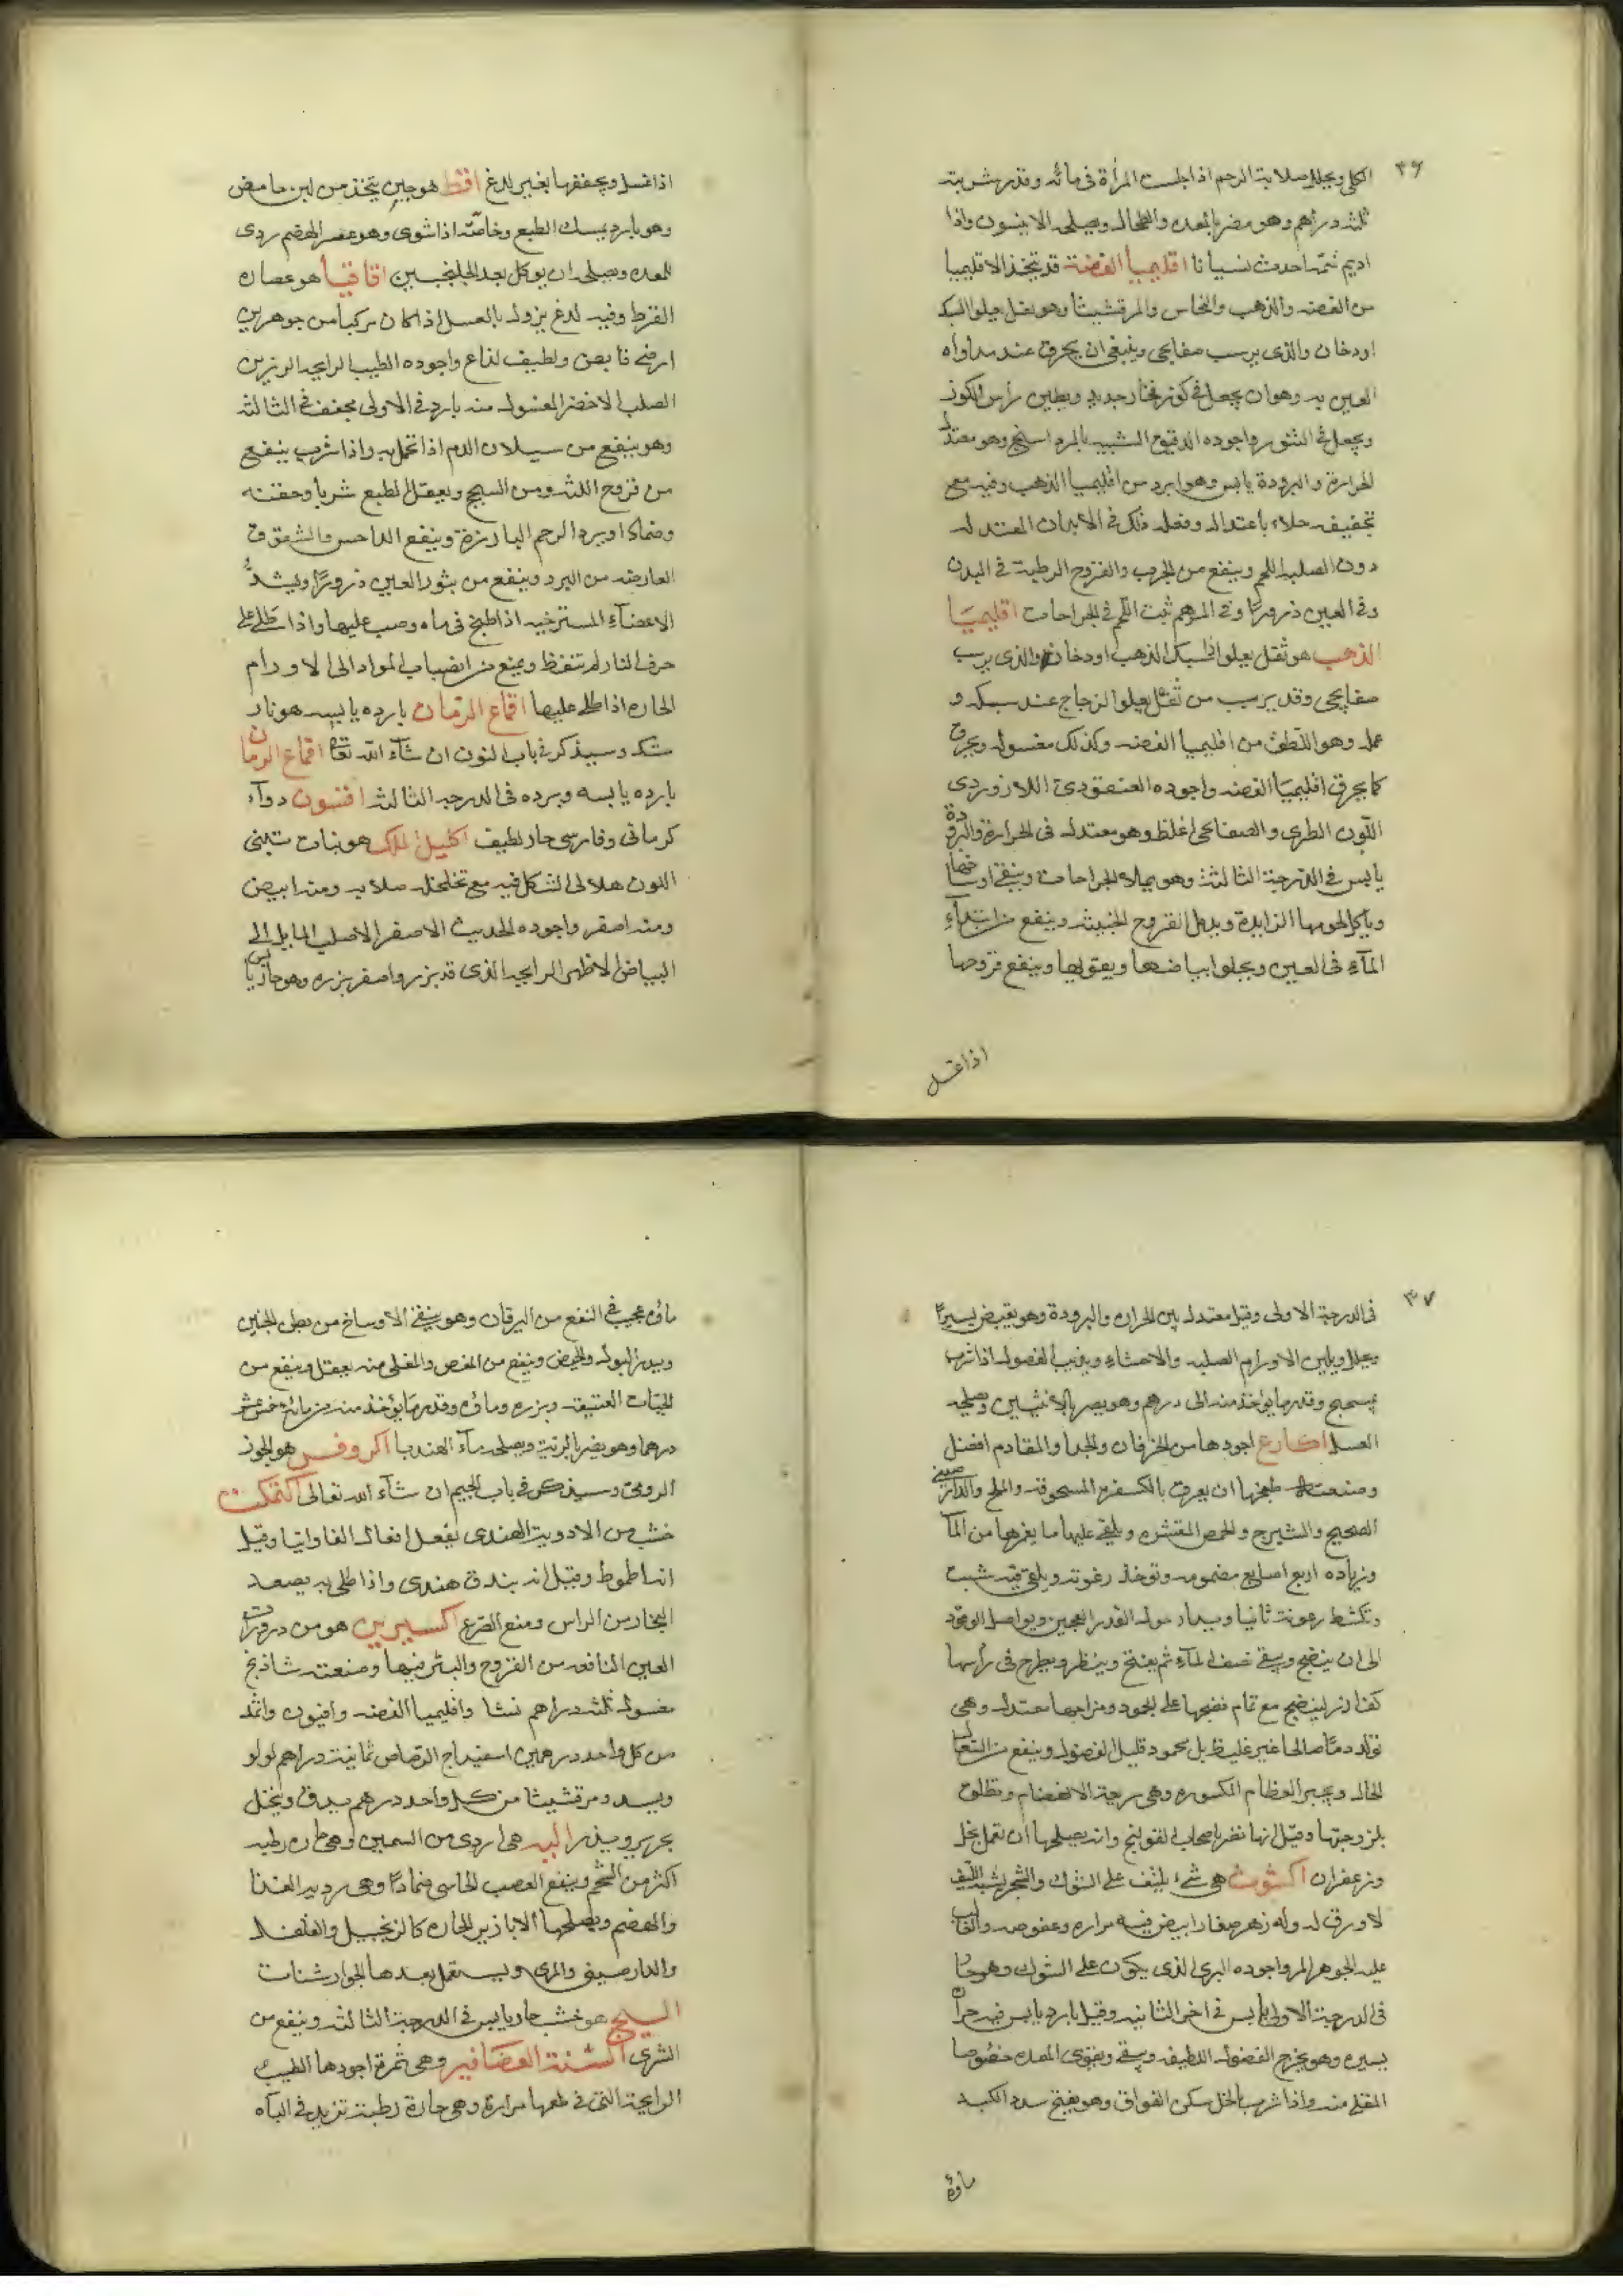 ٣٦
الكلى ويحلل صلابة الرحم اذا جلست المرأة فى مائه وقدر شربته
ثلثة دراهم وهو مضر بالمعده والطحال ويصلحه الانيسون واذا
اديم شمّه احدث نسيانا اقليميا الفضة قد يتخذ الاقليميا
من الفضه والذهب والنحاس والمرقشيثا وهو ثفل يعلوا السبك
او دخان والذى يرسب صفايحى وينبغى ان يحرق عند مداواة
العين به وهو ان يجعل فى كوز فخار جديد ويطين رأس الكوز
ويجعل فى التنور واجوده الدقيق الشبيه بالمرداسنج وهو معتدل
الحرارة والبرودة يابس وهو ابرد من اقليميا الذهب وفيه مع
تجفيفه جلاء باعتدال وفعله ذلك فى الابدان المعتدله
دون الصلبة اللحم وينفع من الجرب والقروح الرطبة فى البدن
وفى العين ذرورًا وفى المرهم ثبت اللحم فى الجراحات اقليميَا
الذهب هو ثفل يعلوا اذا سبك الذهب او دخان والذى يرسب
صفايحى وقد يرسب من ثفل يعلوا الزجاج عند سبكه و
عمله وهو الطف من اقليميا الفضه وكذلك مغسوله ويحرق
كما يحرق اقليميَا الفضه واجوده العنقودى اللازوردى
اللّون الطرى والصفايحى اغلظ وهو معتدل فى الحرارة والبرودة
يابس فى الدّرجة الثالثة وهو يملاء الجراحات وينقى اوساخها
وياكل لحومها الزايدة ويدمل القروح الخبيثه وينفع من ابتداءِ
المآءِ فى العين ويجلوا بياضها ويقويها وينفع قروحها
اذا غسل
اذا غسل ويجففها بغير لدغ اقط هو جبن يتخذ من لبن حامض
وهو بارد يمسك الطبع وخاصّة اذا شوى وهو عسر الهضم ردى
للمعده ويصلحه ان يوكل بعد الجلنجبين اقاقيا هو عصاره
القرظ وفيه لدغ يزول بالغسل اذا كان مركبًا من جوهرين
ارضى قابض ولطيف لذاع واجوده الطيب الرايحه الرزين
الصلب الاخضر المغسول منه بارد فى الاولى مجفف فى الثالثه
وهو ينفع من سيلان الدم اذا تحمل به واذا شرب ينفع
من قروح اللثه ومن السحج ويعقل الطبع شربا وحقنه
وضمادا ويرد الرحم البارزة وينفع الداحس والشقوق
العارضه من البرد وينفع من بثور العين ذرورًا ويشدّ
الاعضآءِ المسترخيه اذا طبخ فى ماء وصب عليها واذا طلى على
حرق النار لم تنفظ ويمنع من انصباب المواد الى الاورام
الحاره اذا طلى عليها اقماع الرمّان بارده يابسه هو نار
مشك وسيذكر فى باب النون ان شآء الله تعا اقماع الرمان
بارده يابسه وبرده فى الدرجه الثالثه افتسون دوآء
كرمانى وفارسى حار لطيف اكليل الملك هو نبات تبنى
اللون هلالى الشكل فيه مع تخلخله صلابه ومنه ابيض
ومنه اصفر واجوده الحديث الاصفر الاصلب المايل الى
البياض الاظهر الرايحه الذى قد بزر واصفر بزره وهو حار يابس
٣٧
فى الدرجة الاولى وقيل معتدل بين الحراره والبرودة وهو يقبض يسيرًا
ويحلل ويلين الاورام الصلبه والاحشاءِ ويذيب الفضول اذا شرب
بميبختج وقدر ما يؤخذ منه الى درهم وهو يضر بالانثيين ويصلحه
العسل اكارع اجودها من الخرفان والجدا والمقادم افضل
وصنعت طبخها ان يعرق بالكسفره المسحوقه والملح والدارصينى
الصحيح والشيرج والحمص المقشره ويلقى عليها ما يغمرها من المآ
وزياده اربع اصابع مضمومه وتوخذ رغوته ويلقى فيه شبت
وتكشط رغوته ثانيا ويدار حول القدر العجين ويواصل الوقود
الى ان ينضج ويبقى نصف المآءِ ثم يفتح وينظر ويطرح فى رأسها
كفا ارز لينضج مع تمام نضجها على الجمود ومزاجها معتدل وهى
تولد دمًا صالحا غير غليظ بل محمود قليل الفضول وينفع من السعال
الحاد ويجبر العظام المكسوره وهى سريعة الانهضام وتطلق
بلزوجتها وقيل انها تضر باصحاب القولنج وانه يصلحها ان تعمل بخل
وزعفران اكشوث هى شىء يلتف على الشوك والشجر يشبه الليف
لا ورق له وله زهر صغار ابيض فيه مراره وعفوصه والغالب
عليه الجوهر المر واجوده البرى الذى يتكون على الشوك وهو حار
فى الدرجة الاولى يابس فى اخر الثانيه وقيل بارد يابس فيه حرارة
يسيره وهو يخرج الفضول اللطيفه وينقى ويقوى المعده خصُوصا
المقلى منه واذا شرب بالخل سكن الفواق وهو يفتح سدد الكبد
ماؤه
ماؤه عجيب فى النفع من اليرقان وهو ينقى الاوساخ من بطن الجنين
ويدر البول والحيض وينفع من المغص والمغلى منه يعقل وينفع من
الحميّات العتيقه وبزره وماؤه وقدر ما يؤخذ منه من مائه خمسة عشر
درهما وهو يضر بالرئة ويصلحه مآء الهندبا اكروفس هو الجوز
الرومى وسيذكر فى باب الجيم ان شآء الله تعالى اكتمكت
خشب من الادوية الهندى يفعل افعال الفاوانيا وقيل
انه اطموط وقيل انه بندق هندى واذا طلى به يصعد
البخار من الراس ومنع الصّرع اكسيرين هو من ذرورات
العين النافعه من القروح والبثر فيها وصنعته شاذنج
مغسول ثلثه دراهم نشا واقليميا الفضه وافيون واثمد
من كل واحد درهمين اسفيداج الرّصاص ثمانية دراهم لولو
وبسد ومرقشيثا من كل واحد درهم يدق وينخل
بحرير ويذر اليه هى اردى من السمين وهى حاره رطبه
اكثر من الشحم وينفع العصب الجاسى ضمادًا وهى رديه الغذا
والهضم ويصلحها الابازير الحاره كالزنجبيل والفلفل
والدارصينى والمرى ويستعمل بعدها الجوارشنات
السيح هو خشب حار يابس فى الدرجة الثالثه وينفع من
الشرى السنة العصَافير وهى ثمرة اجودها الطيب
الرايحة التى فى طعمها مرارة وهى حارة رطبة تزيد فى الباه